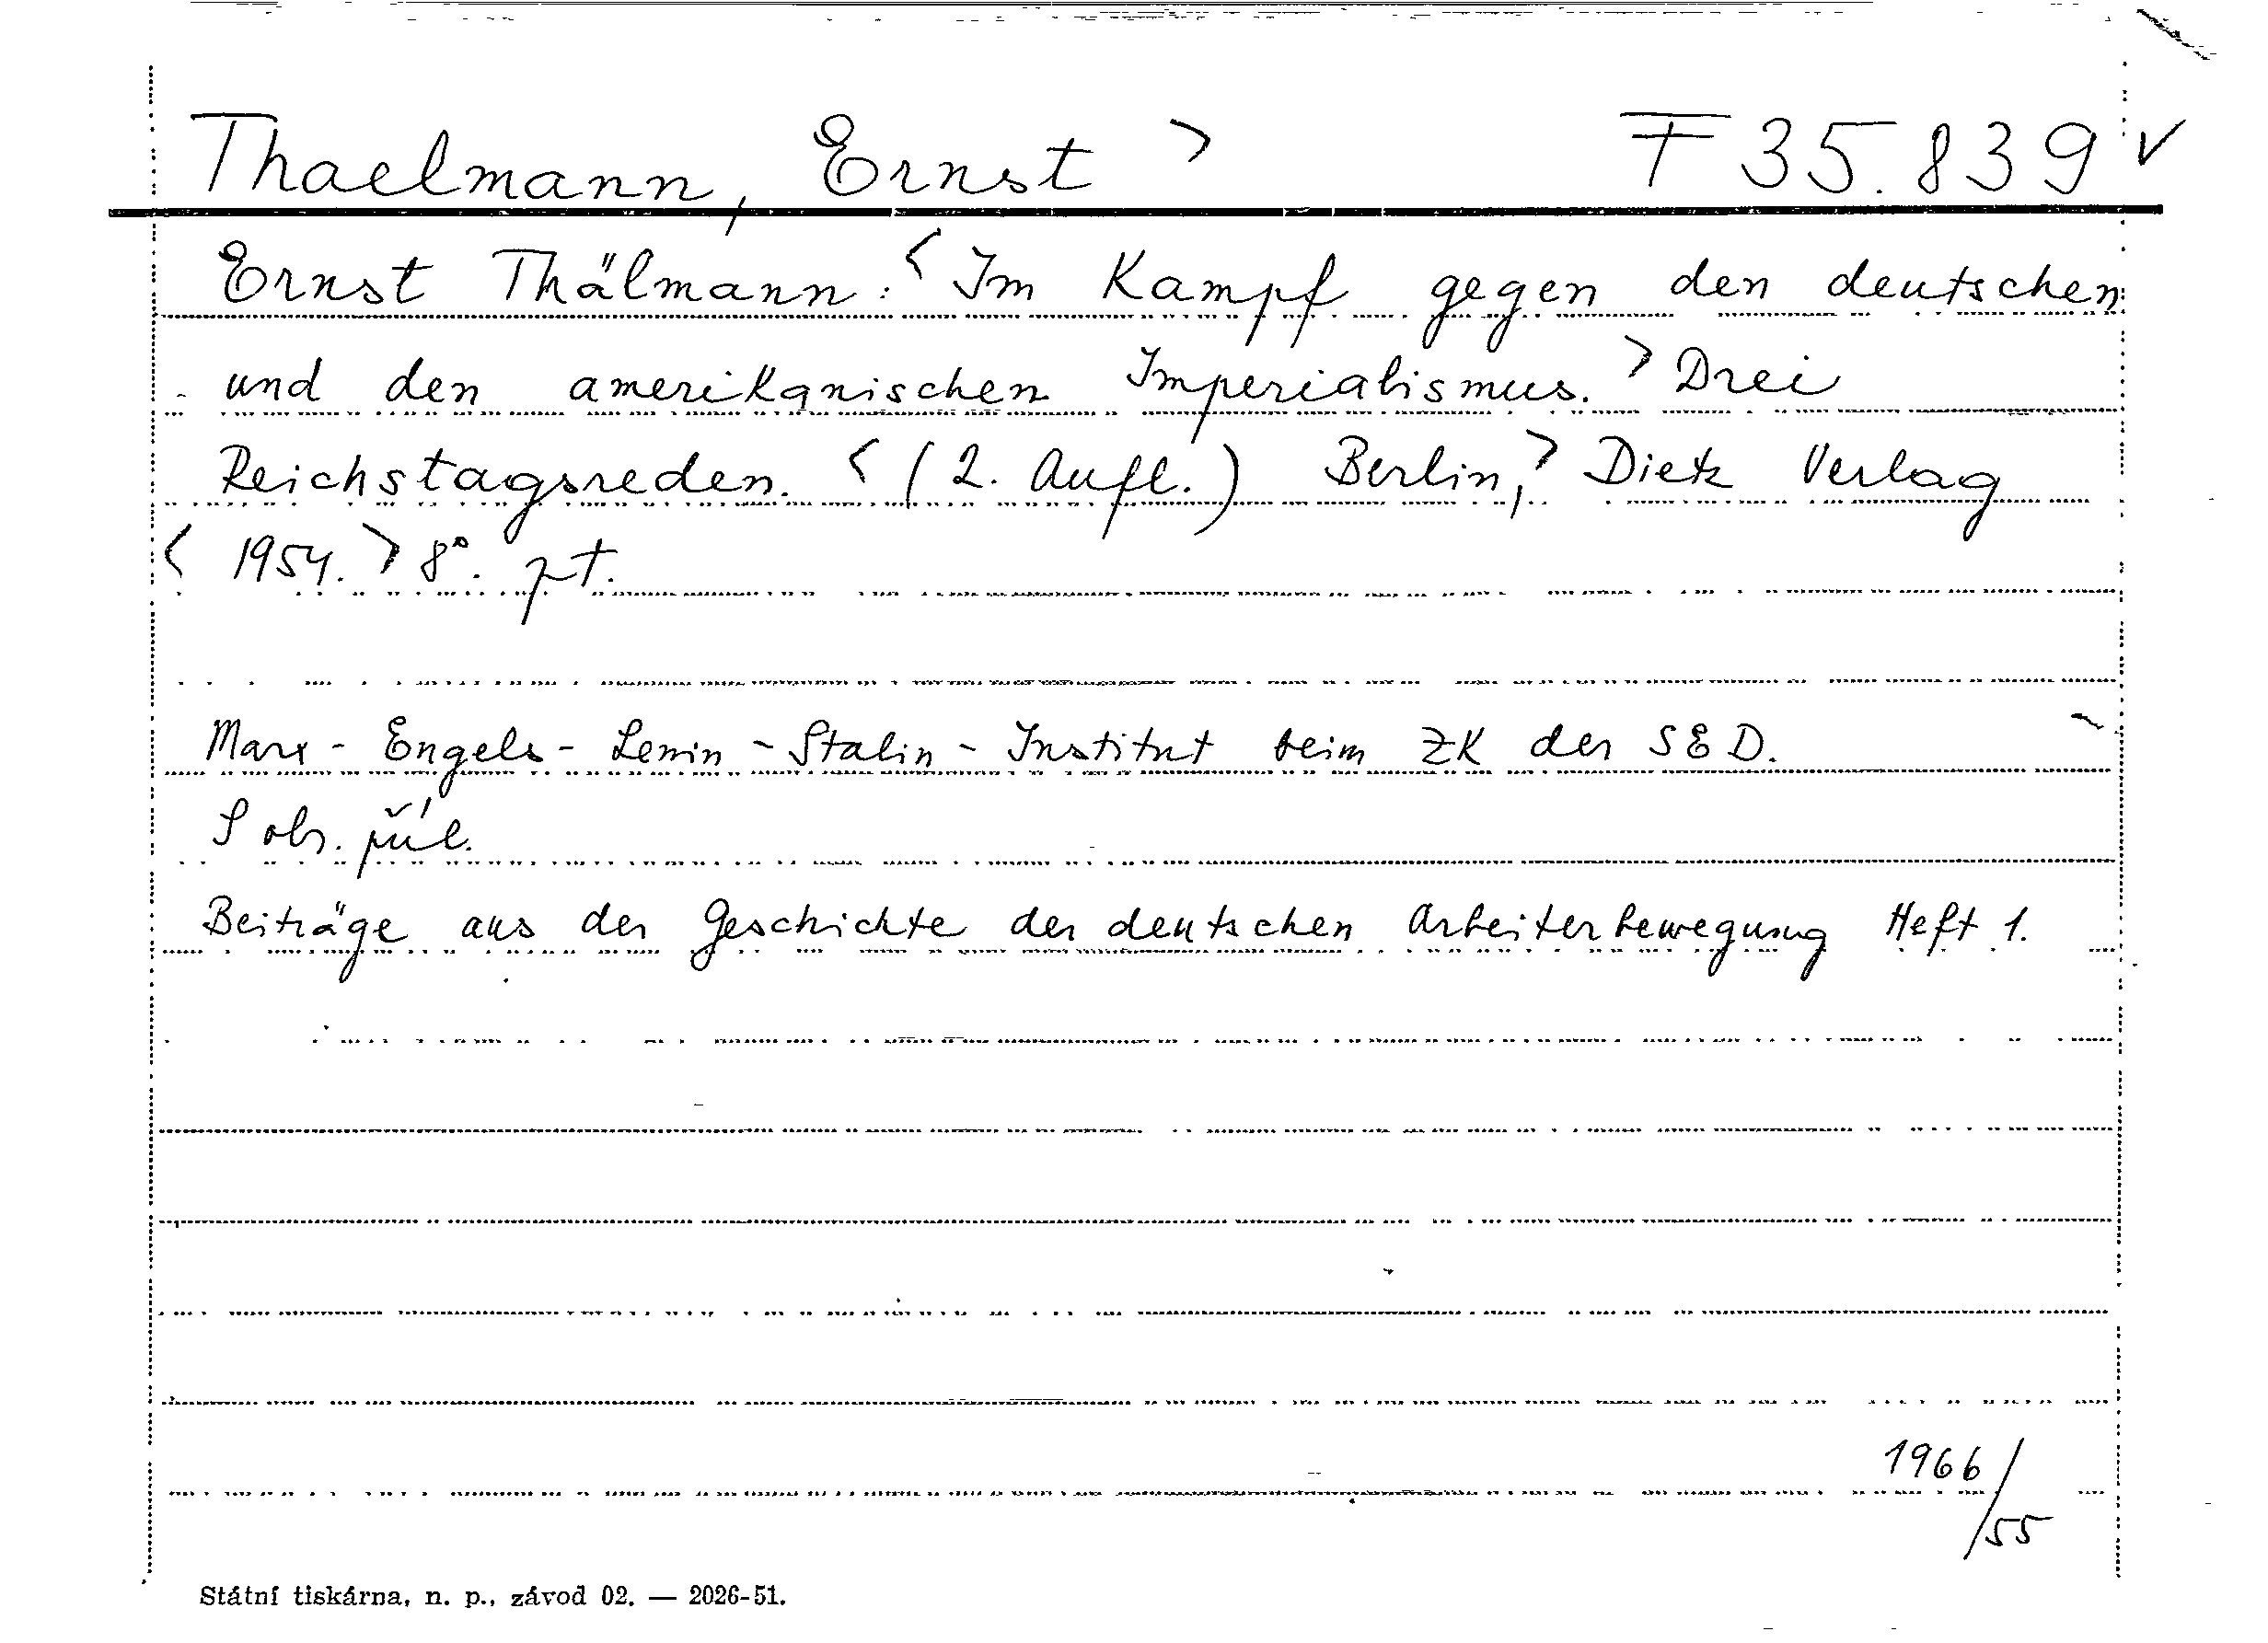 Thaelmann, Ernst > F 35.839 ✓
Ernst Thälmann: < Im Kampf gegen den deutschen
und den amerikanischen Imperialismus. > Drei
Reichstagsreden. < (2. Aufl.) Berlin, > Dietz Verlag
< 1954. > 8°. pt.
Marx - Engels - Lenin - Stalin - Institut beim ZK der SED.
S obr. příl.
Beiträge aus der Geschichte der deutschen Arbeiterbewegung Heft 1.
1966/55
Státní tiskárna, n. p., závod 02. — 2026-51.